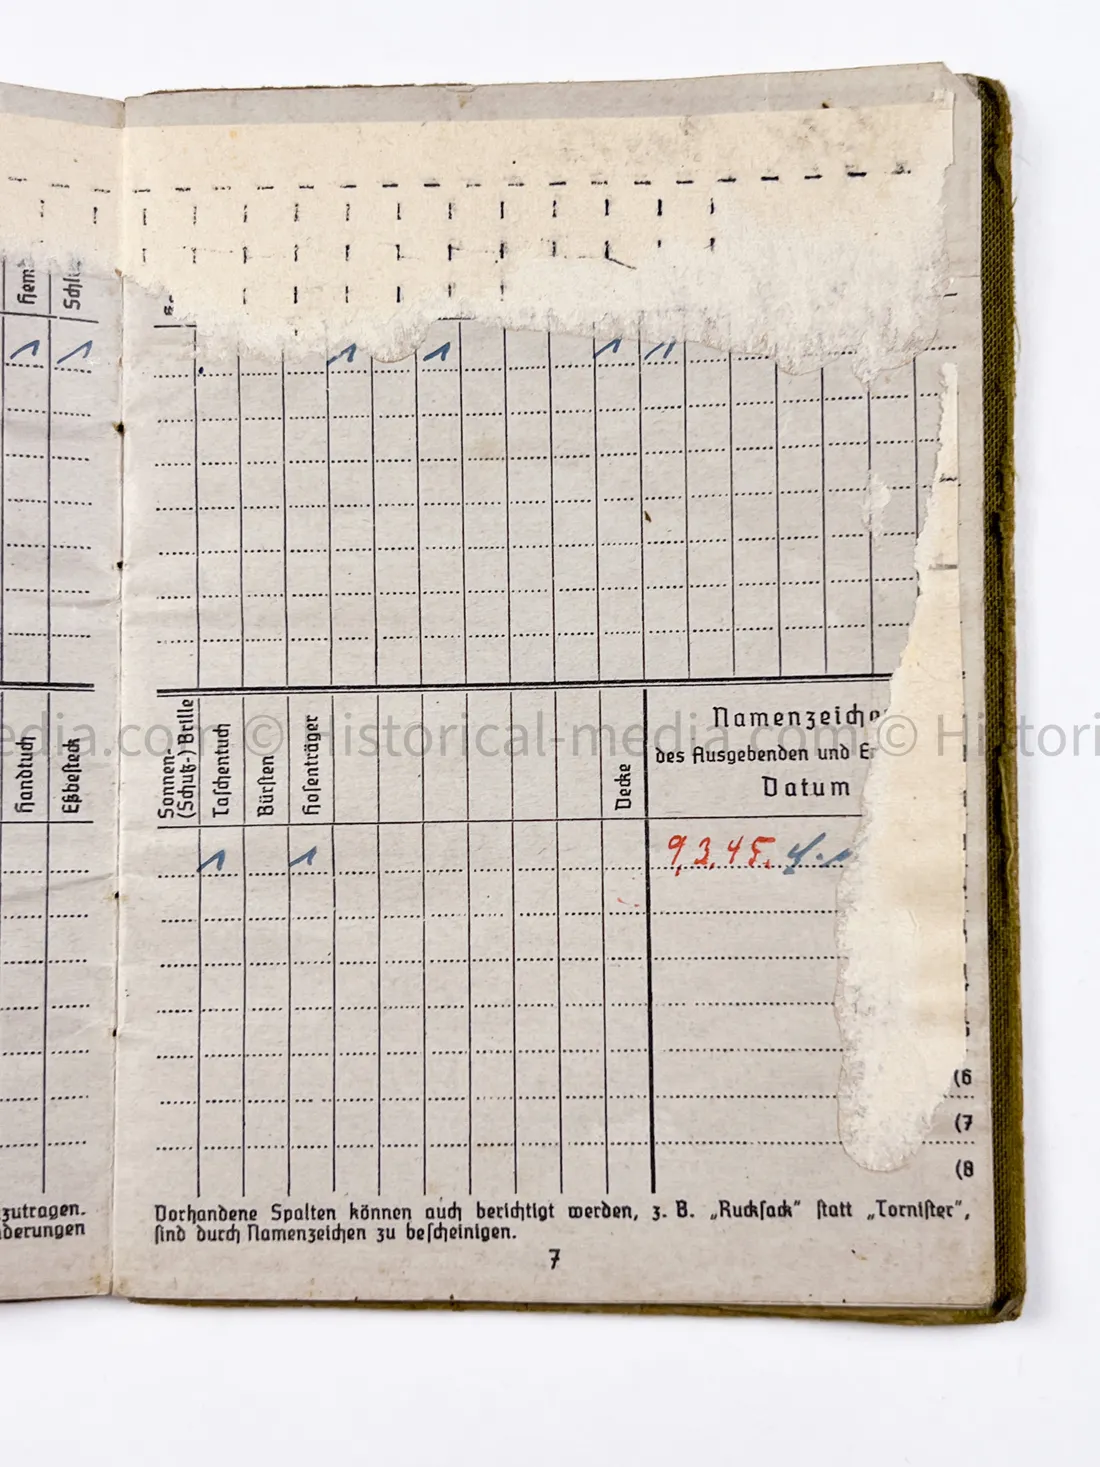 Hem
Schl
1 1 1 1 1 11
Handtuch
Eßbesteck
Sonnen-
(Schutz-) Brille
Taschentuch
Bürsten
Hosenträger
Decke
Namenzeiche
des Ausgebenden und E
Datum
edia.com © Historical-media.com © Histori
1 1 9.3.45.
(6
(7
(8
zutragen.
derungen
Vorhandene Spalten können auch berichtigt werden, z. B. „Rucksack" statt „Tornister",
sind durch Namenzeichen zu bescheinigen.
7